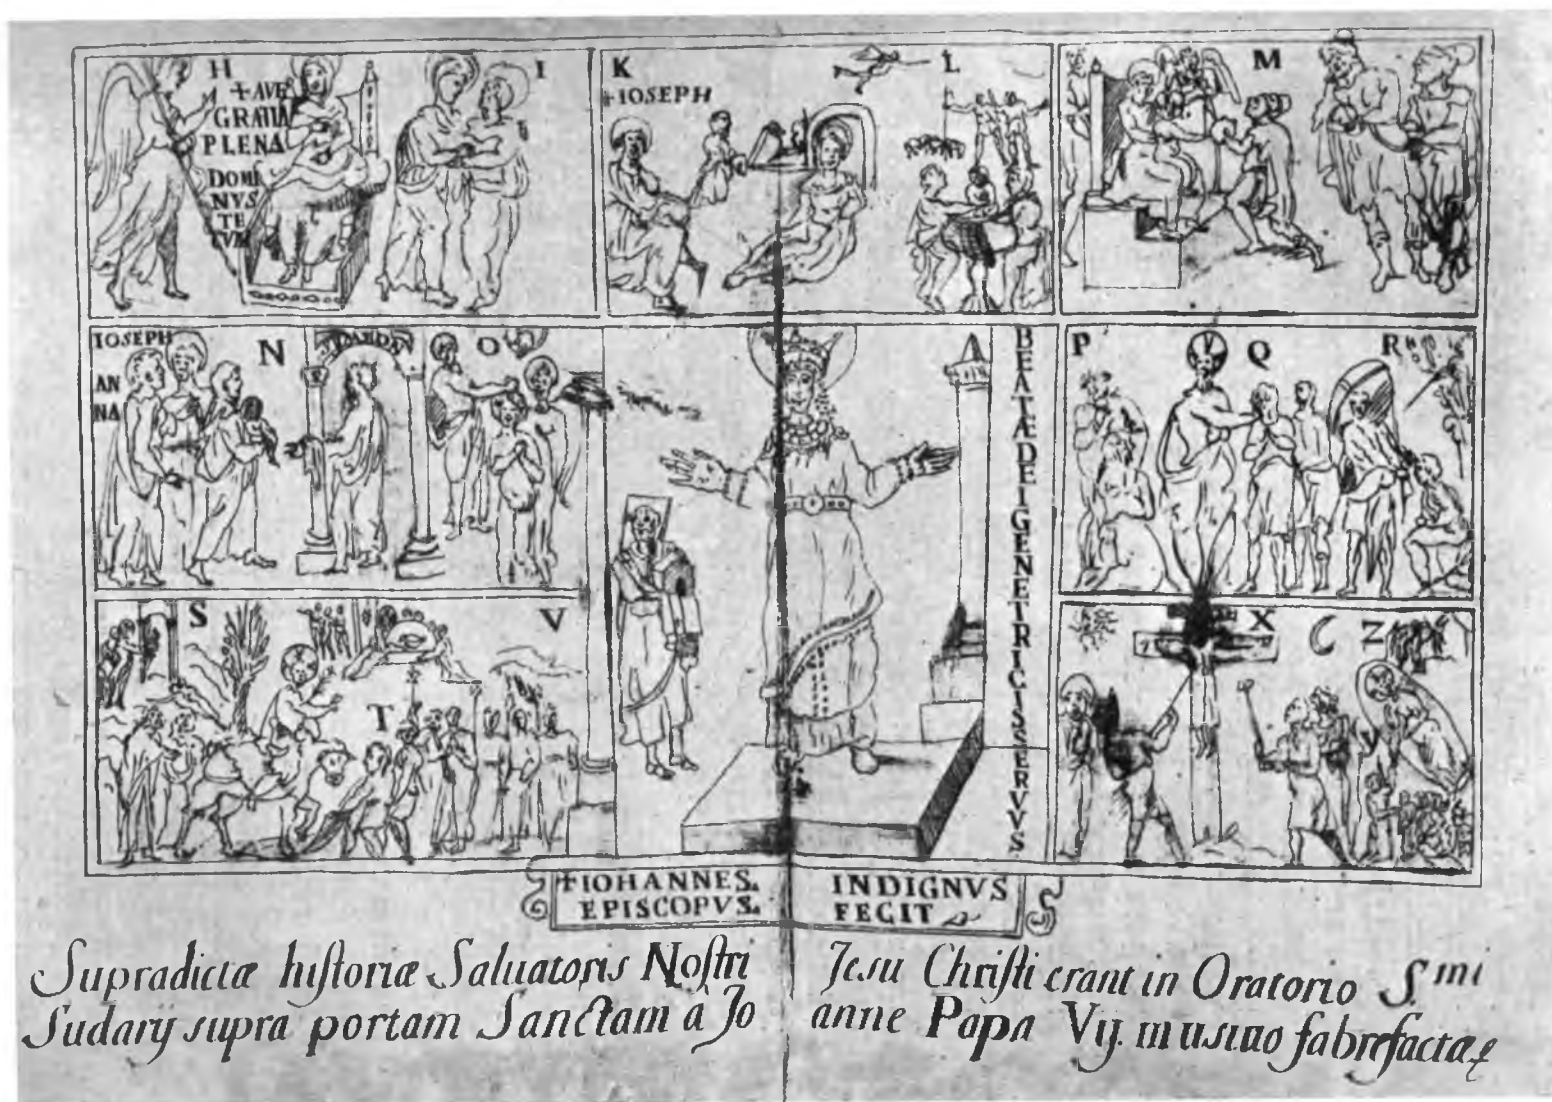 H
+AVE
GRATIA
PLENA
DOMI
NVS
TE
CVM
I
K
+IOSEPH
L
M
IOSEPH
AN
NA
N
O
P
Q
R
S
T
V
X
Z
BEATÆ DEI GENETRICIS SERVVS
+IOHANNES. INDIGNVS
EPISCOPVS. FECIT
Supradictæ historiæ Saluatoris Nostri Jesu Christi erant in Oratorio S.mi
Sudarij supra portam Sanctam à Joanne Papa Vij. musiuo fabrefactæ